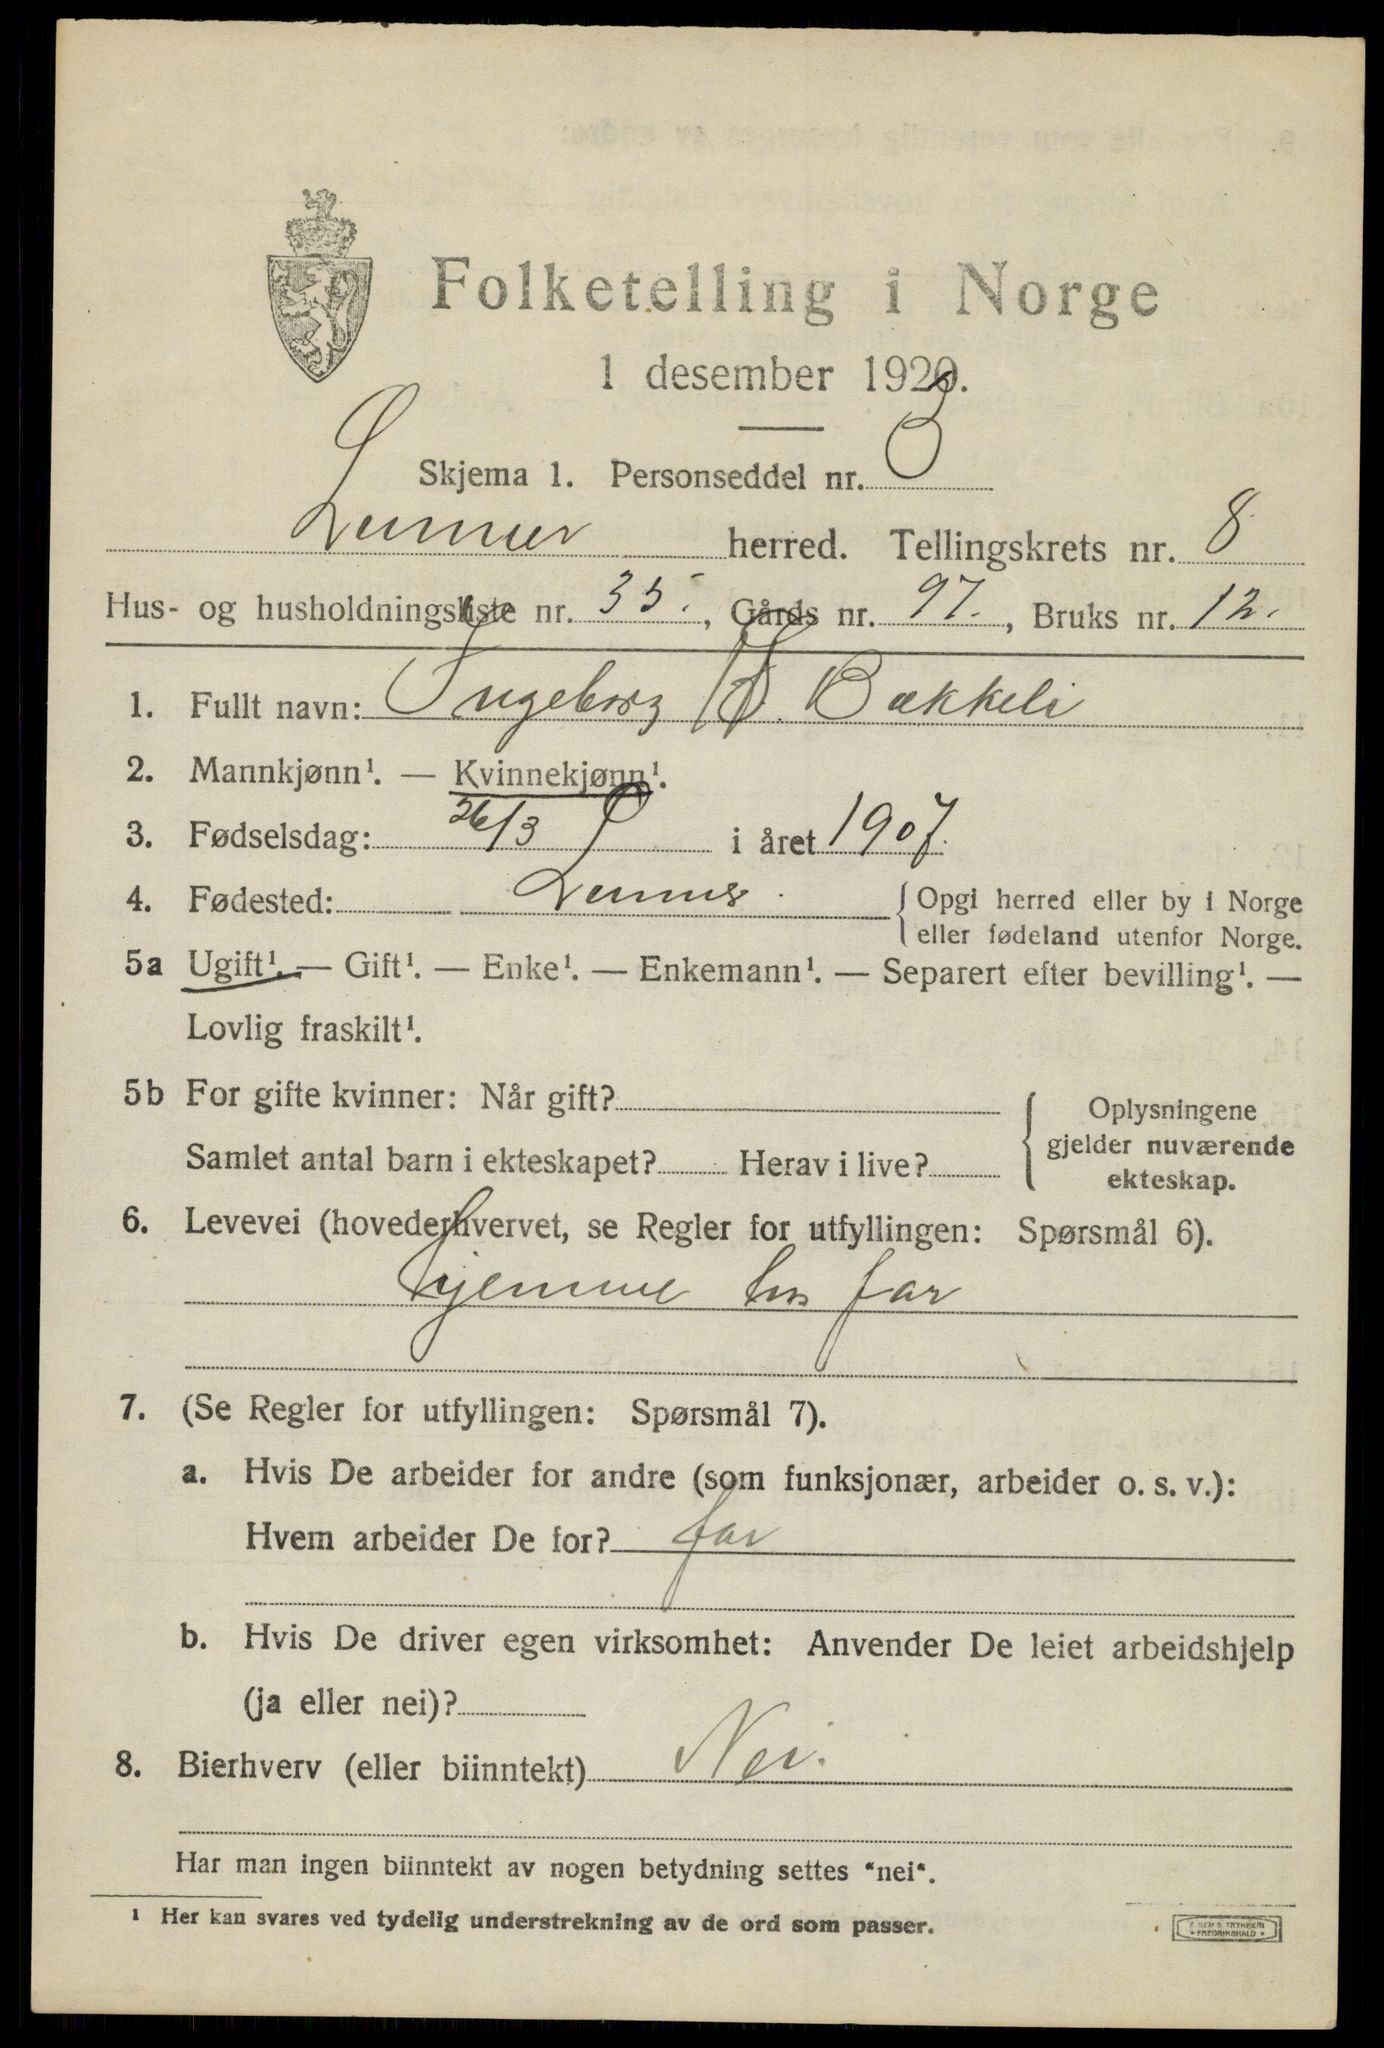 Folketelling i Norge
1 desember 1920.
Skjema 1. Personseddel nr. 3
Lunner herred. Tellingskrets nr. 8
Hus- og husholdningsliste nr. 35., Gårds nr. 97., Bruks nr. 12.
1. Fullt navn: Ingeborg Bækkeli
2. Mannkjønn¹. — Kvinnekjønn¹.
3. Fødselsdag: 26/3 i året 1907.
4. Fødested: Lunner. { Opgi herred eller by i Norge
eller fødeland utenfor Norge.
5a Ugift¹. — Gift¹. — Enke¹. — Enkemann¹. — Separert efter bevilling¹. —
Lovlig fraskilt¹.
5b For gifte kvinner: Når gift? { Oplysningene
gjelder nuværende
Samlet antal barn i ekteskapet? Herav i live?
ekteskap.
6. Levevei (hovederhvervet, se Regler for utfyllingen: Spørsmål 6).
hjemme hos far
7. (Se Regler for utfyllingen: Spørsmål 7).
a. Hvis De arbeider for andre (som funksjonær, arbeider o. s. v.):
Hvem arbeider De for? far
b. Hvis De driver egen virksomhet: Anvender De leiet arbeidshjelp
(ja eller nei)?
8. Bierhverv (eller biinntekt) Nei.
Har man ingen biinntekt av nogen betydning settes "nei".
¹ Her kan svares ved tydelig understrekning av de ord som passer.
TRYKKERI
FREDRIKSHALD